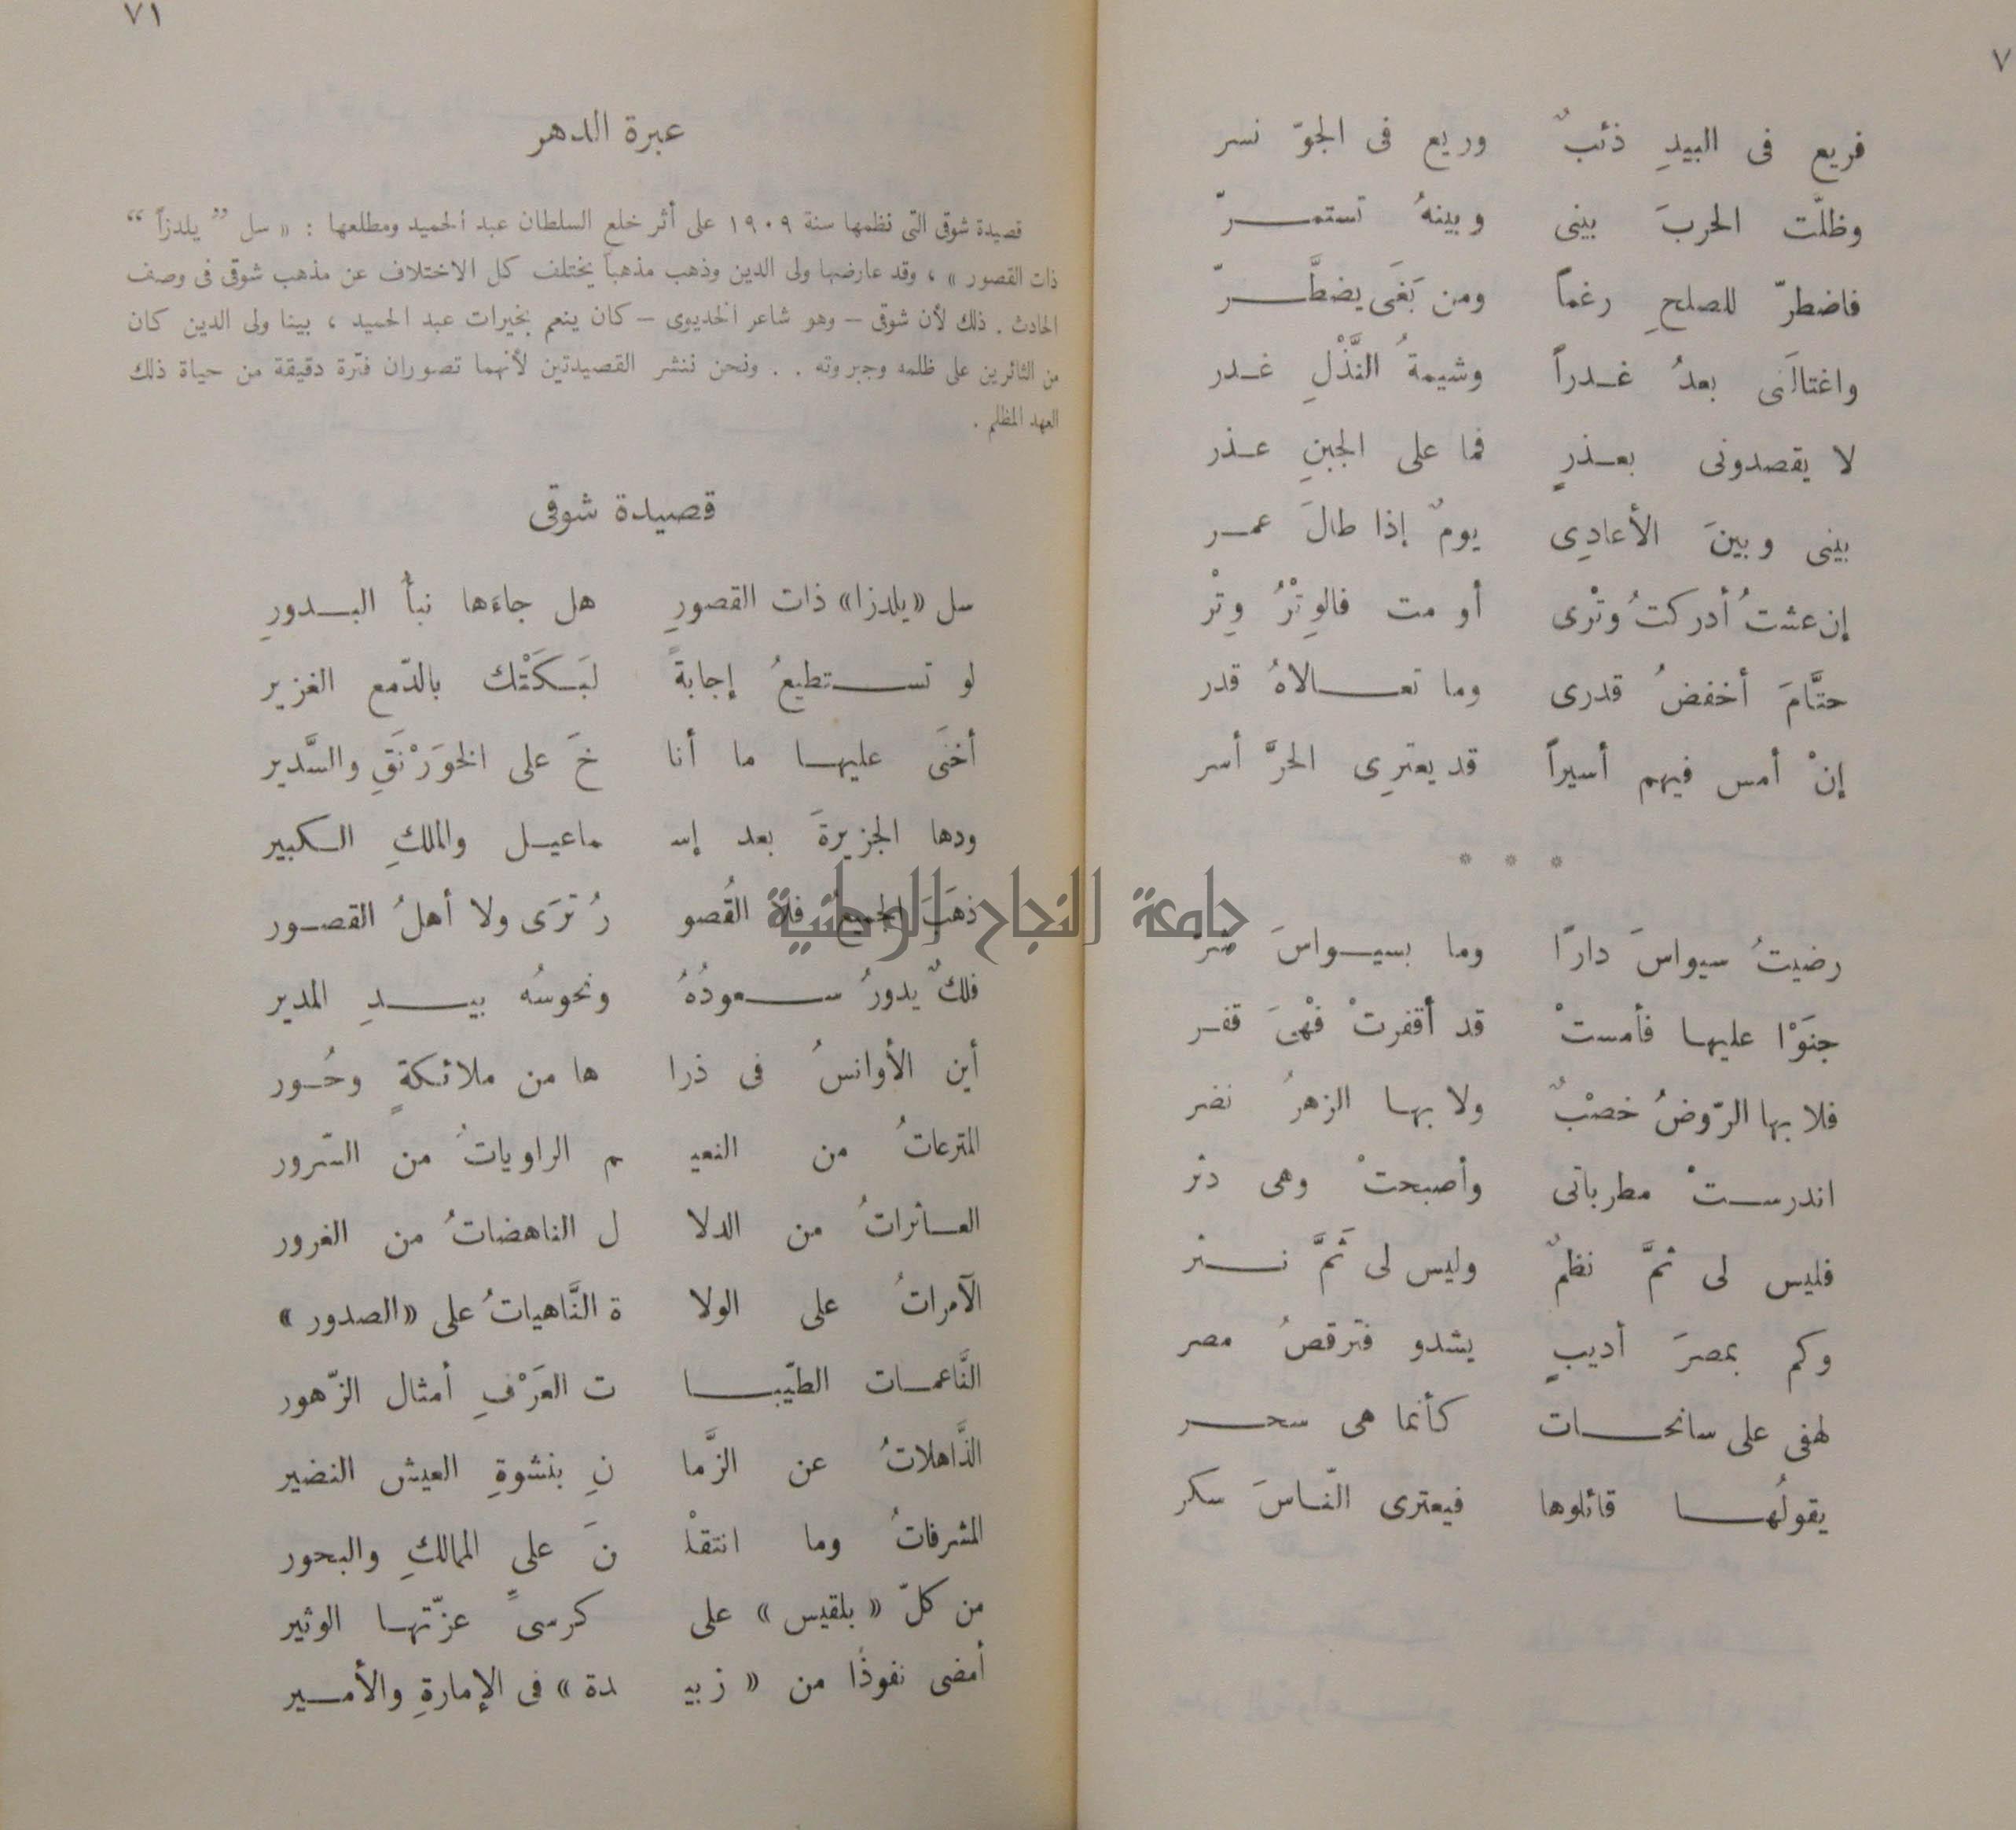 ٧
فريع فى البيدِ ذئبٌ وريع فى الجوّ نسر
وظلَّت الحربَ بينى وبينهُ تستمرّ
فاضطرّ للصلحِ رغماً ومن بَغَى يضطَّرّ
واغتالَنى بعدُ غدراً وشيمةُ النَّذْلِ غدر
لا يقصدونى بعذرٍ فما على الجبنِ عذر
بينى وبينَ الأعادِى يومٌ إذا طالَ عمر
إن عشتُ أدركتُ وتْرى أو مت فالوِتْرُ وِتْر
حتَّامَ أخفضُ قدرى وما تعالاهُ قدر
إنْ أمس فيهم أسيراً قد يعترِى الحرَّ أسر
* * *
رضيتُ سيواسَ دارًا وما بسيواسَ شر
جنَوْا عليها فأمستْ قد أقفرتْ فهْىَ قفر
فلا بها الرّوضُ خصْبٌ ولا بها الزهرُ نضر
اندرستْ مطرباتى وأصبحتْ وهى دثر
فليس لى ثمَّ نظمٌ وليس لى ثَمَّ نثر
وكم بمصرَ أديبٍ يشدو فترقصُ مصر
لهفى على سانحات كأنما هى سحر
يقولُها قائلوها فيعترى النّاسَ سكر
٧١
عبرة الدهر
قصيدة شوقى التى نظمها سنة ١٩٠٩ على أثر خلع السلطان عبد الحميد ومطلعها : « سل ” يلدزاً “
ذات القصور » ، وقد عارضها ولى الدين وذهب مذهباً يختلف كل الاختلاف عن مذهب شوقى فى وصف
الحادث . ذلك لأن شوقى – وهو شاعر الخديوى – كان ينعم بخيرات عبد الحميد ، بينا ولى الدين كان
من الثائرين على ظلمه وجبروته . . ونحن ننشر القصيدتين لأنهما تصوران فترة دقيقة من حياة ذلك
العهد المظلم .
قصيدة شوقى
سل «يلدزا» ذات القصورِ هل جاءَها نبأُ البدورِ
لو تستطيعُ إجابةً لبَكَتْك بالدّمع الغزير
أخنَى عليها ما أنا خَ على الخوَرْنَقِ والسَّدير
ودها الجزيرةَ بعد إسـ ماعيل والملكِ الكبير
ذهَبَ الجميعُ فلا القُصو رُ ترَى ولا أهلُ القصور
فلكٌ يدورُ سعودُهُ ونحوسُه بيدِ المدير
أين الأوانسُ فى ذرا ها من ملائكةٍ وحُور
المترعاتُ من النعيـ م الراوياتُ من السّرور
العاثراتُ من الدلا ل الناهضاتُ من الغرور
الآمراتُ على الولا ة النَّاهياتُ على «الصدور»
النَّاعمات الطيّبا ت العَرْفِ أمثال الزّهور
الذَّاهلاتُ عن الزَّما نِ بنشوةِ العيش النضير
المشرفاتُ وما انتقلْـ نَ على الممالكِ والبحور
من كلّ « بلقيس » على كرسىِّ عزّتها الوثير
أمضى نفوذًا من « زبيـ دة » فى الإمارةِ والأمير
جامعة النجاح الوطنية